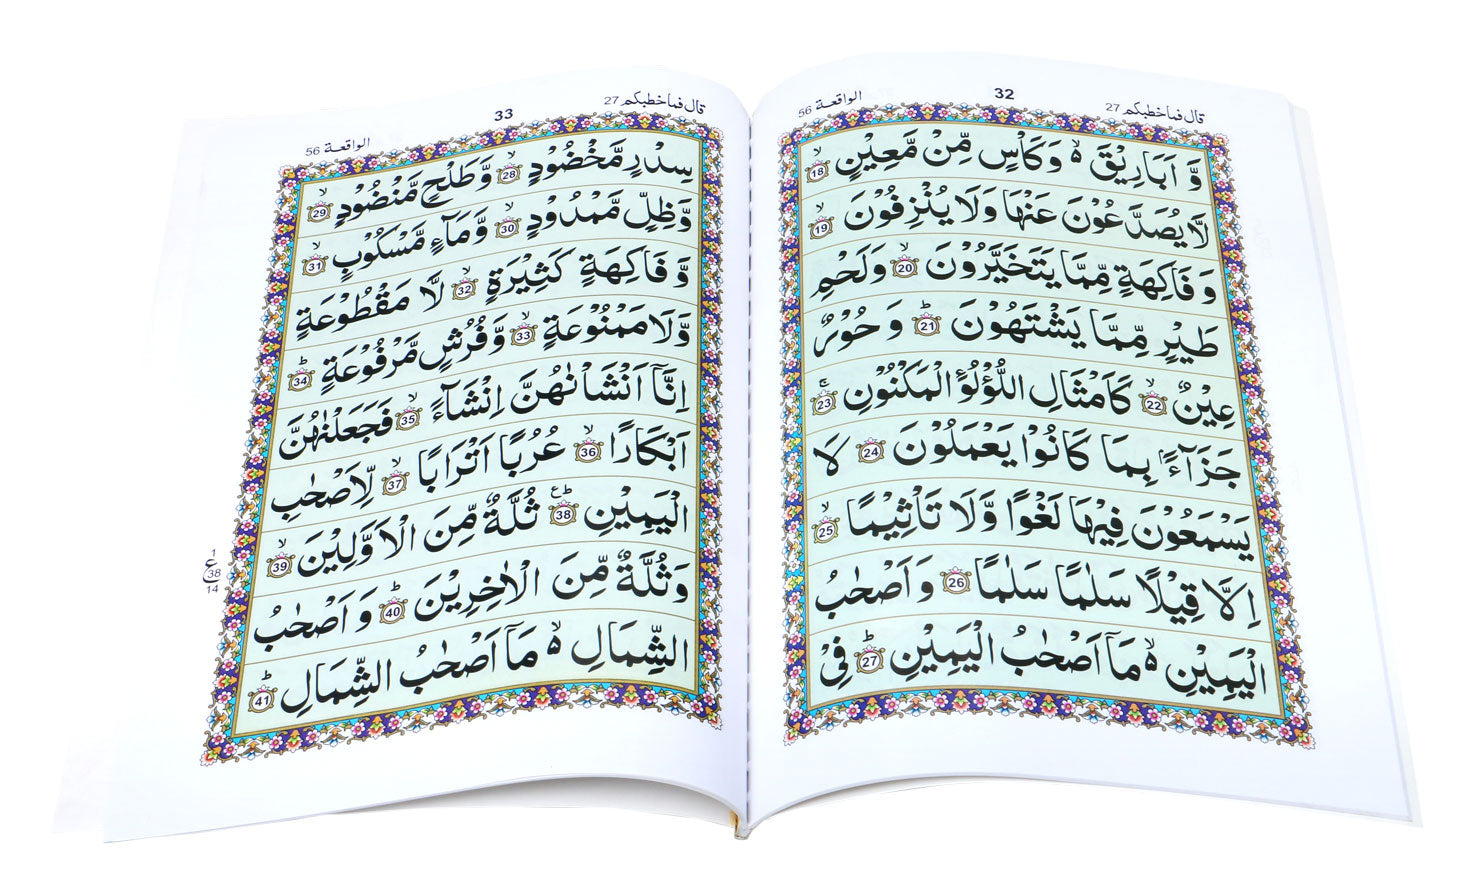 قال فما خطبكم 27
32
الواقعة 56
وَّ اَبَارِيْقَ ۙ وَكَاْسٍ مِّنْ مَّعِيْنٍ ۙ 18
لَّا يُصَدَّعُوْنَ عَنْهَا وَلَا يُنْزِفُوْنَ ۙ 19
وَ فَاكِهَةٍ مِّمَّا يَتَخَيَّرُوْنَ ۙ 20 وَلَحْمِ
طَيْرٍ مِّمَّا يَشْتَهُوْنَ ؕ 21 وَ حُوْرٌ
عِيْنٌ ۙ 22 كَاَمْثَالِ اللُّؤْلُؤِ الْمَكْنُوْنِ ۚ 23
جَزَآءًۢ بِمَا كَانُوْا يَعْمَلُوْنَ 24 لَا
يَسْمَعُوْنَ فِيْهَا لَغْوًا وَّلَا تَاْثِيْمًا ۙ 25
اِلَّا قِيْلًا سَلٰمًا سَلٰمًا 26 وَ اَصْحٰبُ
الْيَمِيْنِ ۙ مَاۤ اَصْحٰبُ الْيَمِيْنِ ؕ 27 فِيْ
قال فما خطبكم 27
33
الواقعة 56
سِدْرٍ مَّخْضُوْدٍ ۙ 28 وَّ طَلْحٍ مَّنْضُوْدٍ ۙ 29
وَّ ظِلٍّ مَّمْدُوْدٍ ۙ 30 وَّ مَآءٍ مَّسْكُوْبٍ ۙ 31
وَّ فَاكِهَةٍ كَثِيْرَةٍ ۙ 32 لَّا مَقْطُوْعَةٍ
وَّلَا مَمْنُوْعَةٍ ۙ 33 وَّ فُرُشٍ مَّرْفُوْعَةٍ ؕ 34
اِنَّاۤ اَنْشَاْنٰهُنَّ اِنْشَآءً ۙ 35 فَجَعَلْنٰهُنَّ
اَبْكَارًا ۙ 36 عُرُبًا اَتْرَابًا ۙ 37 لِّاَصْحٰبِ
الْيَمِيْنِ ؕع 38 ثُلَّةٌ مِّنَ الْاَوَّلِيْنَ ۙ 39
وَ ثُلَّةٌ مِّنَ الْاٰخِرِيْنَ ؕ 40 وَ اَصْحٰبُ
1 ع 38 14
الشِّمَالِ ۙ مَاۤ اَصْحٰبُ الشِّمَالِ ؕ 41